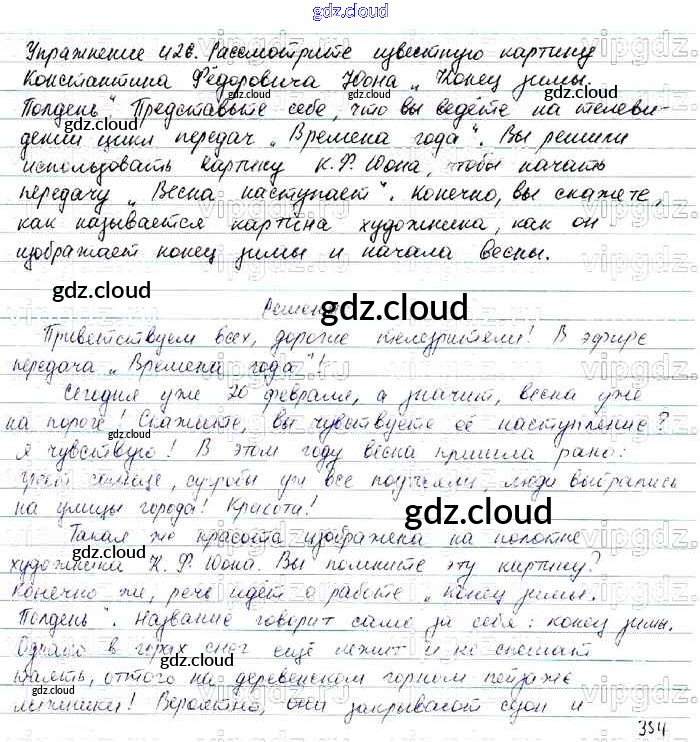 gdz.cloud
Упражнение 426. Рассмотрите известную картину
Константина Фёдоровича Юона „Конец зимы.
Полдень“ Представьте себе, что вы ведёте на телеви-
дении цикл передач „Времена года“. Вы решили
использовать картину К. Ф. Юона, чтобы начать
передачу „Весна наступает“. Конечно, вы скажете,
как называется картина художника, как он
изображает конец зимы и начала весны.
Решение
Приветствуем всех, дорогие телезрители! В эфире
передача „Времена года“!
Сегодня уже 20 февраля, а значит, весна уже
на пороге! Скажите, вы чувствуете её наступление?
Я чувствую! В этом году весна пришла рано:
греет солнце, сугробы уже все подтаяли, люди выбрались
на улицы города! Красота!
Такая же красота изображена на полотне
художника К. Ф. Юона. Вы помните эту картину?
Конечно же, речь идёт о работе „Конец зимы.
Полдень“. Название говорит само за себя: конец зимы.
Однако в горах снег ещё лежит и не спешит
таять, оттого на деревенском горном пейзаже
лыжники! Вероятно, они закрывают сезон и
354